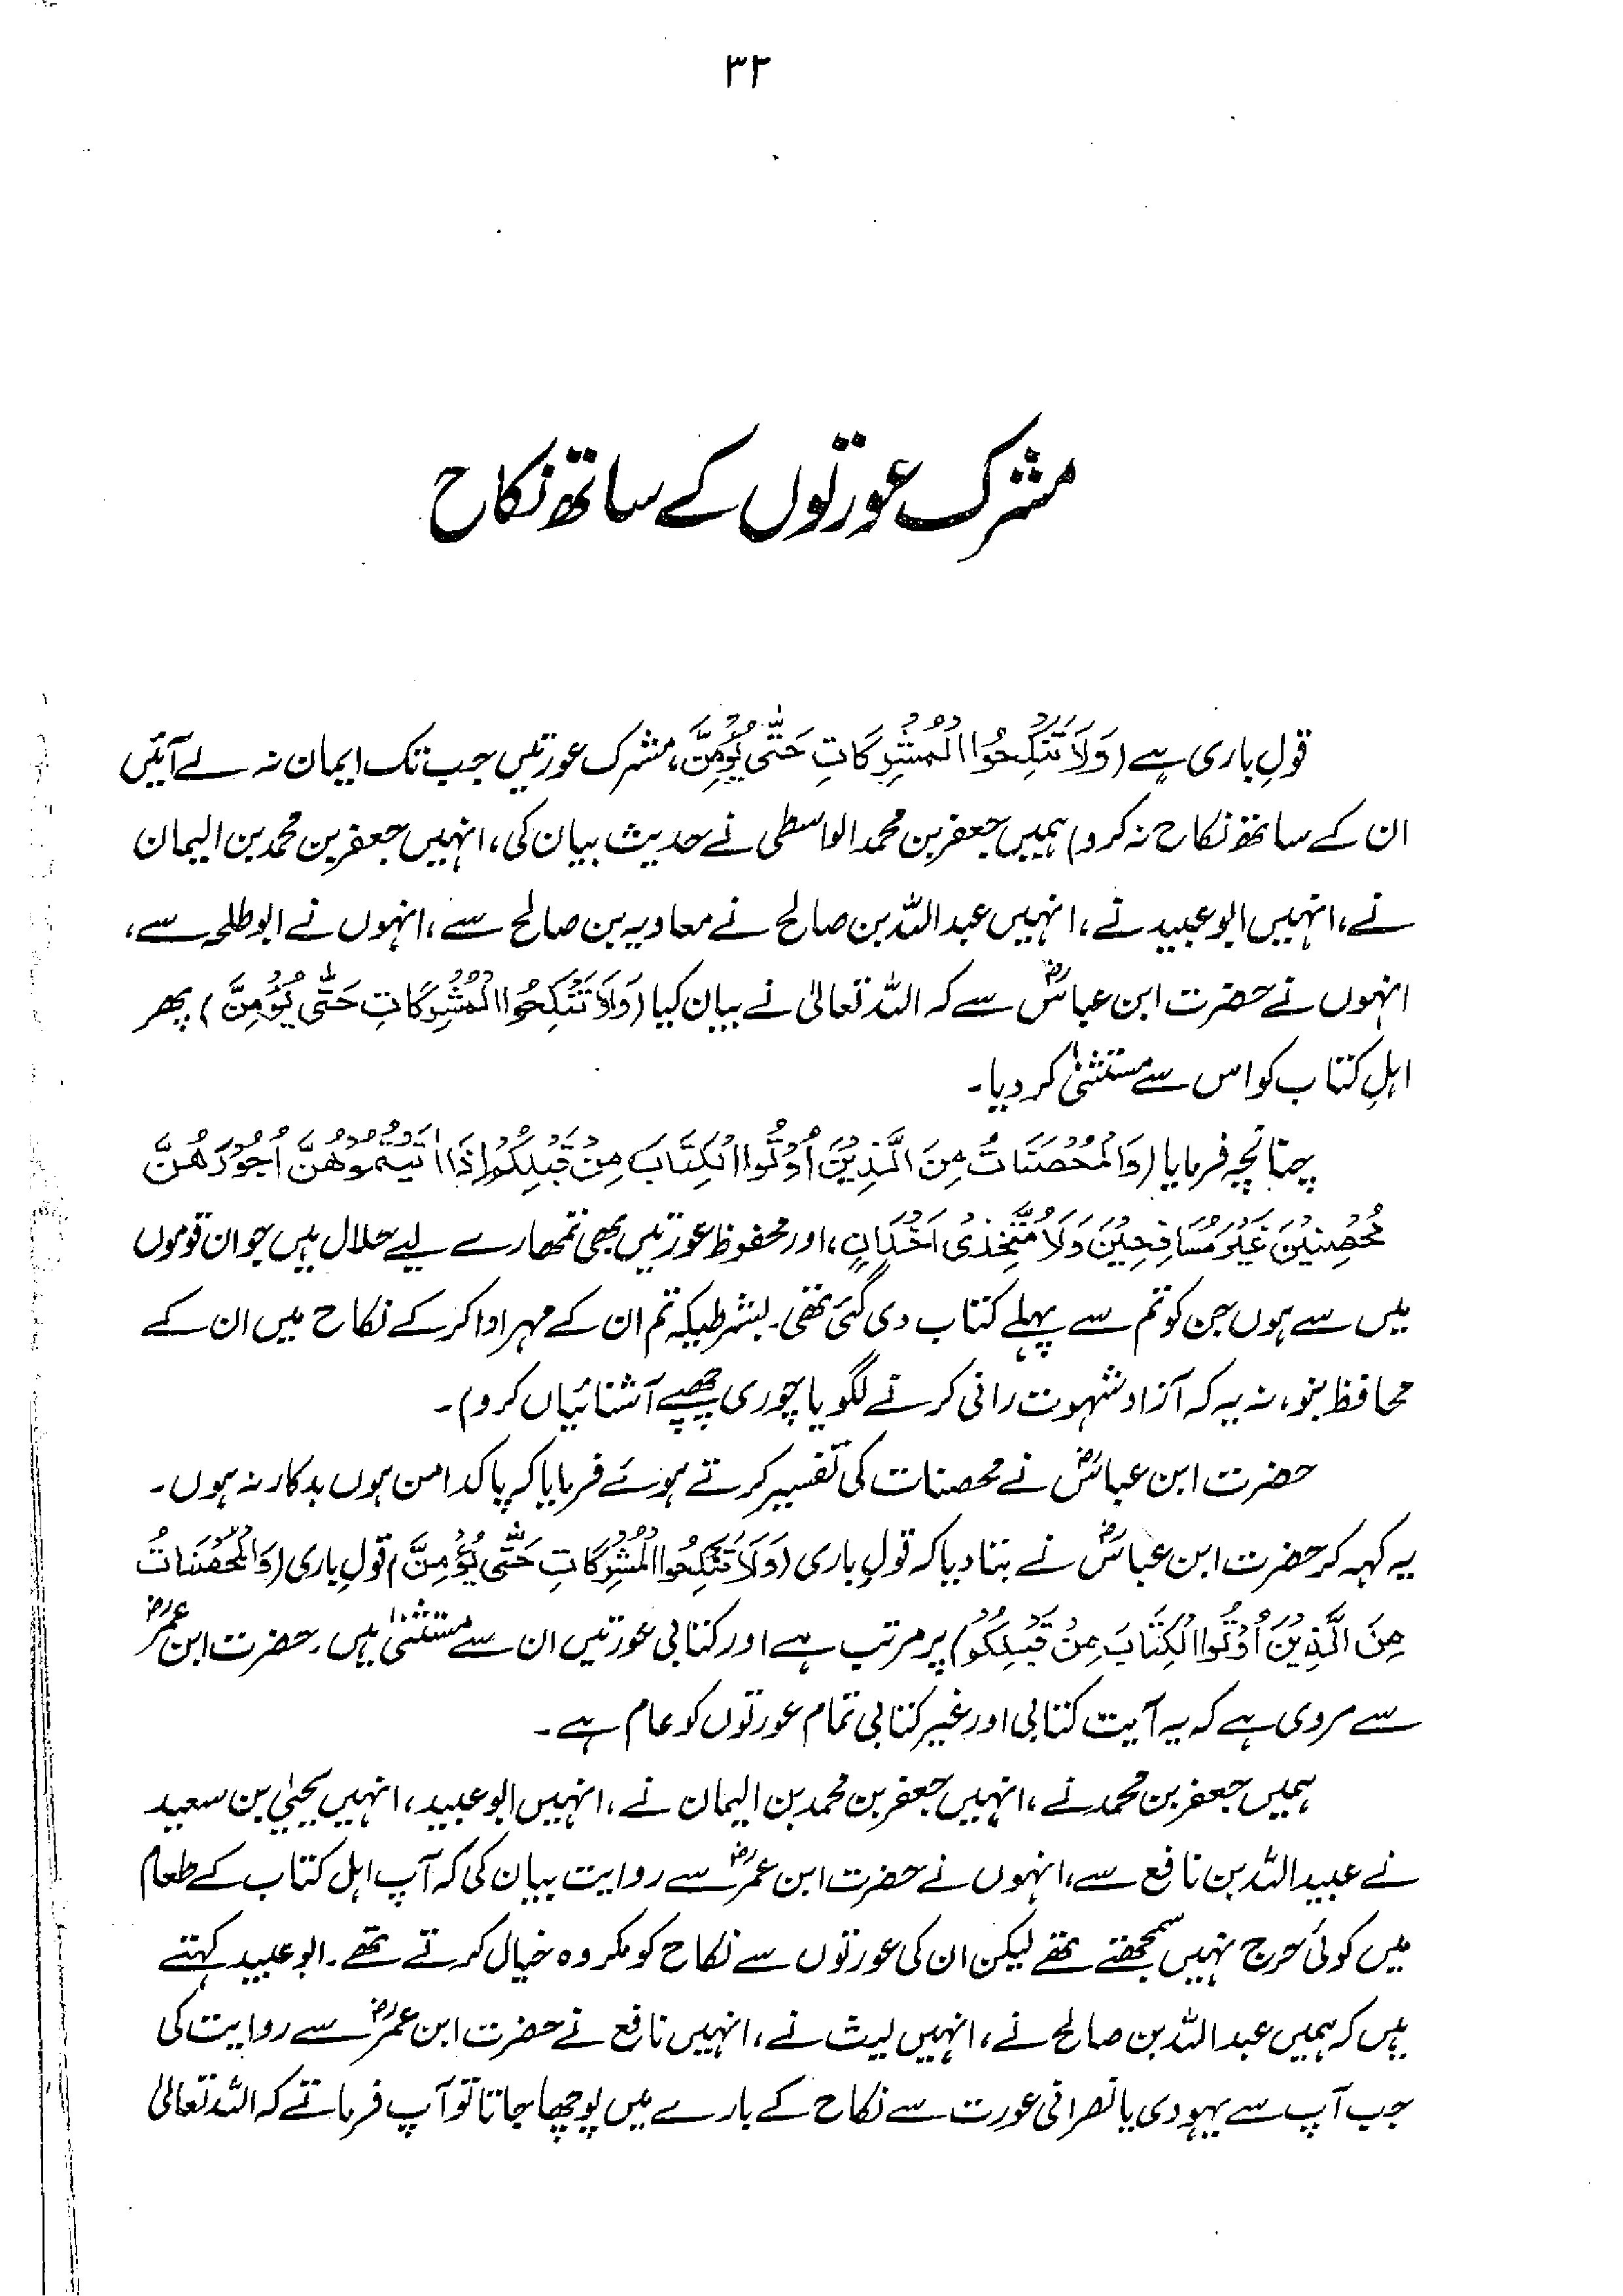 ۳۲
مشرک عورتوں کے ساتھ نکاح
قولِ باری ہے (وَلَا تَنْكِحُوا الْمُشْرِكَاتِ حَتّٰى يُؤْمِنَّ، مشرک عورتیں جب تک ایمان نہ لے آئیں
ان کے ساتھ نکاح نہ کرو) ہمیں جعفر بن محمد الواسطی نے حدیث بیان کی، انہیں جعفر بن محمد بن الیمان
نے، انہیں ابو عبید نے، انہیں عبد اللہ بن صالح نے معاویہ بن صالح سے، انہوں نے ابو طلحہ سے،
انہوں نے حضرت ابن عباسؓ سے کہ اللہ تعالیٰ نے بیان کیا (وَلَا تَنْكِحُوا الْمُشْرِكَاتِ حَتّٰى يُؤْمِنَّ) پھر
اہلِ کتاب کو اس سے مستثنیٰ کر دیا۔
چنانچہ فرمایا (وَالْمُحْصَنَاتُ مِنَ الَّذِيْنَ أُوْتُوا الْكِتَابَ مِنْ قَبْلِكُمْ إِذَا اٰتَيْتُمُوْهُنَّ أُجُوْرَهُنَّ
مُحْصِنِيْنَ غَيْرَ مُسَافِحِيْنَ وَلَا مُتَّخِذِىْ اَخْدَانٍ، اور محفوظ عورتیں بھی تمھارے لیے حلال ہیں جو ان قوموں
میں سے ہوں جن کو تم سے پہلے کتاب دی گئی تھی۔ بشرطیکہ تم ان کے مہر ادا کر کے نکاح میں ان کے
محافظ بنو، نہ یہ کہ آزاد شہوت رانی کرنے لگو یا چوری چھپے آشنائیاں کرو)۔
حضرت ابن عباسؓ نے محصنات کی تفسیر کرتے ہوئے فرمایا کہ پاکدامن ہوں بدکار نہ ہوں۔
یہ کہہ کر حضرت ابن عباسؓ نے بتا دیا کہ قولِ باری (وَلَا تَنْكِحُوا الْمُشْرِكَاتِ حَتّٰى يُؤْمِنَّ) قولِ باری (وَالْمُحْصَنَاتُ
مِنَ الَّذِيْنَ أُوْتُوا الْكِتَابَ مِنْ قَبْلِكُمْ) پر مرتب ہے اور کتابی عورتیں ان سے مستثنیٰ ہیں۔ حضرت ابن عمرؓ
سے مروی ہے کہ یہ آیت کتابی اور غیر کتابی تمام عورتوں کو عام ہے۔
ہمیں جعفر بن محمد نے، انہیں جعفر بن محمد بن الیمان نے، انہیں ابو عبید، انہیں یحییٰ بن سعید
نے عبید اللہ بن نافع سے، انہوں نے حضرت ابن عمرؓ سے روایت بیان کی کہ آپ اہل کتاب کے طعام
میں کوئی حرج نہیں سمجھتے تھے لیکن ان کی عورتوں سے نکاح کو مکروہ خیال کرتے تھے۔ ابو عبید کہتے
ہیں کہ ہمیں عبد اللہ بن صالح نے، انہیں لیث نے، انہیں نافع نے حضرت ابن عمرؓ سے روایت کی
جب آپ سے یہودی یا نصرانی عورت سے نکاح کے بارے میں پوچھا جاتا تو آپ فرماتے کہ اللہ تعالیٰ